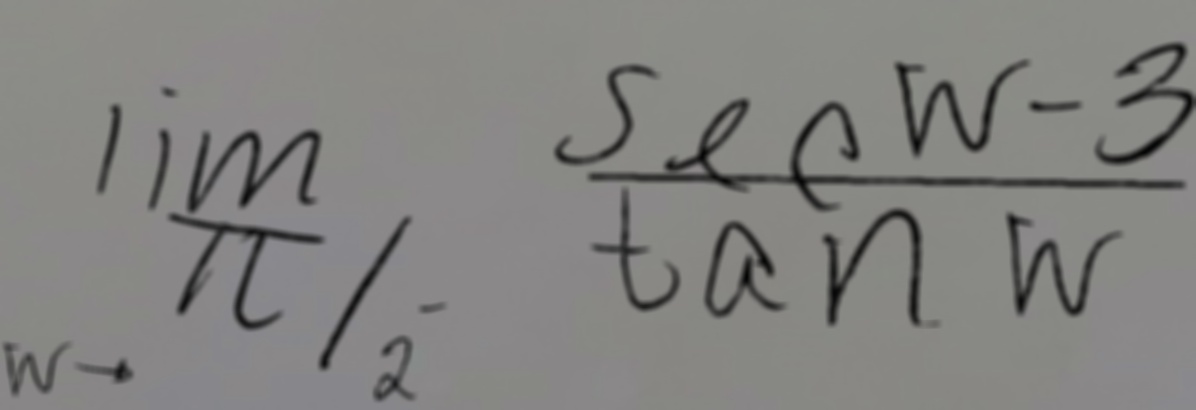 lim w→π/2⁻ sec w-3
tan w